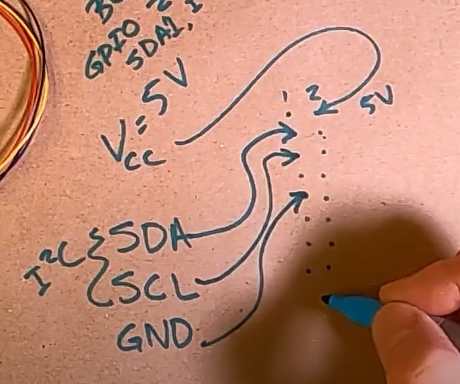 GPIO 2
SDA1, I
VCC = 5V
1 2 5V
I²C { SDA
SCL
GND